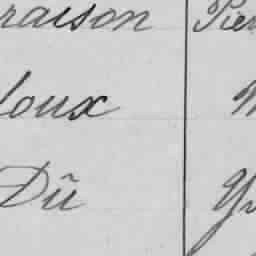 raison Pier
loux
Dū Yv